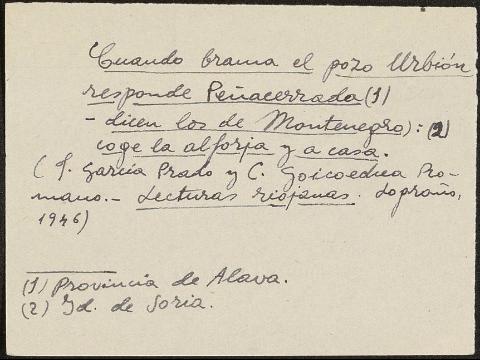 Cuando brama el pozo Urbión
responde Peñacerrada (1)
- dicen los de Montenegro): (2)
coge la alforja y a casa.
( J. García Prado y C. Goicoechea Ro-
mano.- Lecturas riojanas. Logroño,
1946)
(1) Provincia de Alava.
(2) Id. de Soria.